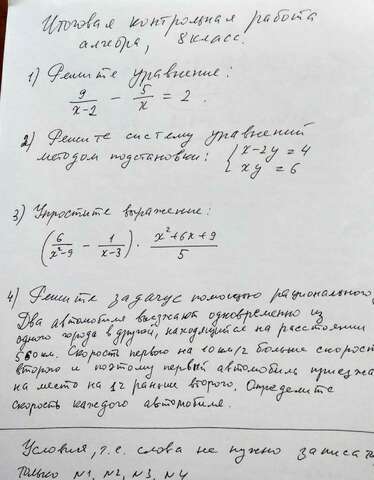 Итоговая контрольная работа
алгебра, 8 класс.
1) Решите уравнение:
9/(x-2) - 5/x = 2.
2) Решите систему уравнений
методом подстановки: { x-2y=4
xy=6
3) Упростите выражение:
(6/(x²-9) - 1/(x-3)) · (x²+6x+9)/5
4) Решите задачу с помощью рационального
Два автомобиля выезжают одновременно из
одного города в другой, находящийся на расстоянии
560 км. Скорость первого на 10 км/ч больше скорост
второго и поэтому первый автомобиль приезжа
на место на 1ч раньше второго. Определите
скорость каждого автомобиля.
Условия, т.е. слова не нужно записа
только №1, №2, №3, №4